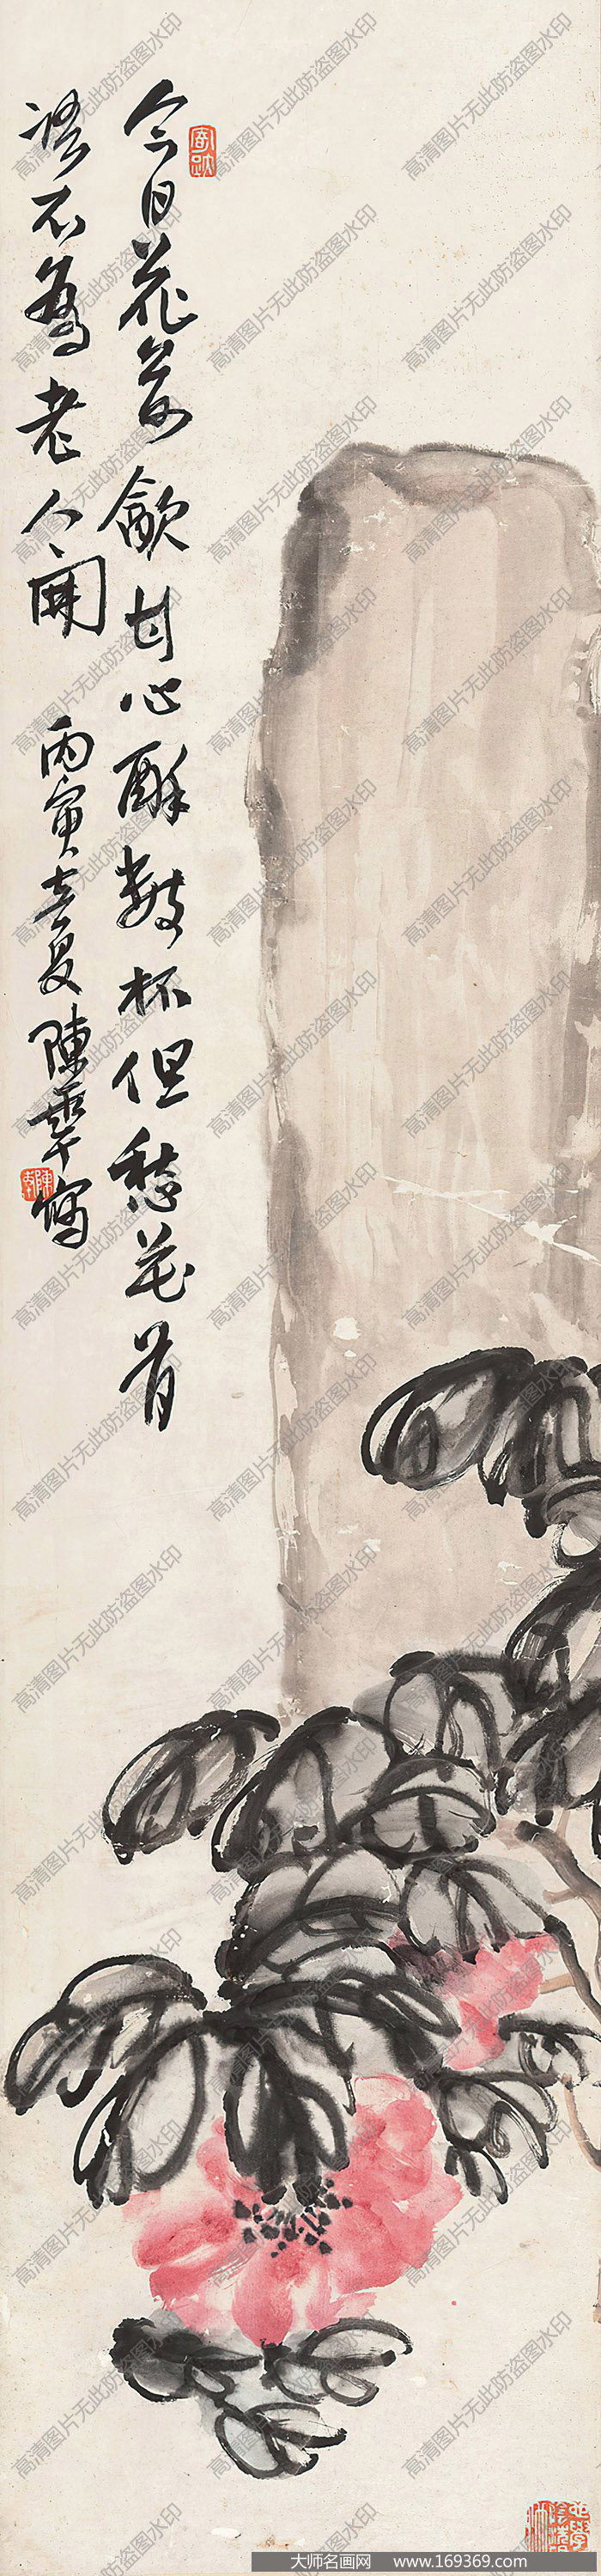 今日花前飲甘心醉數杯但愁花有
語不為老人開
丙寅夏陳半丁寫
大师名画网 www.169369.com
高清图片无此防盗图水印